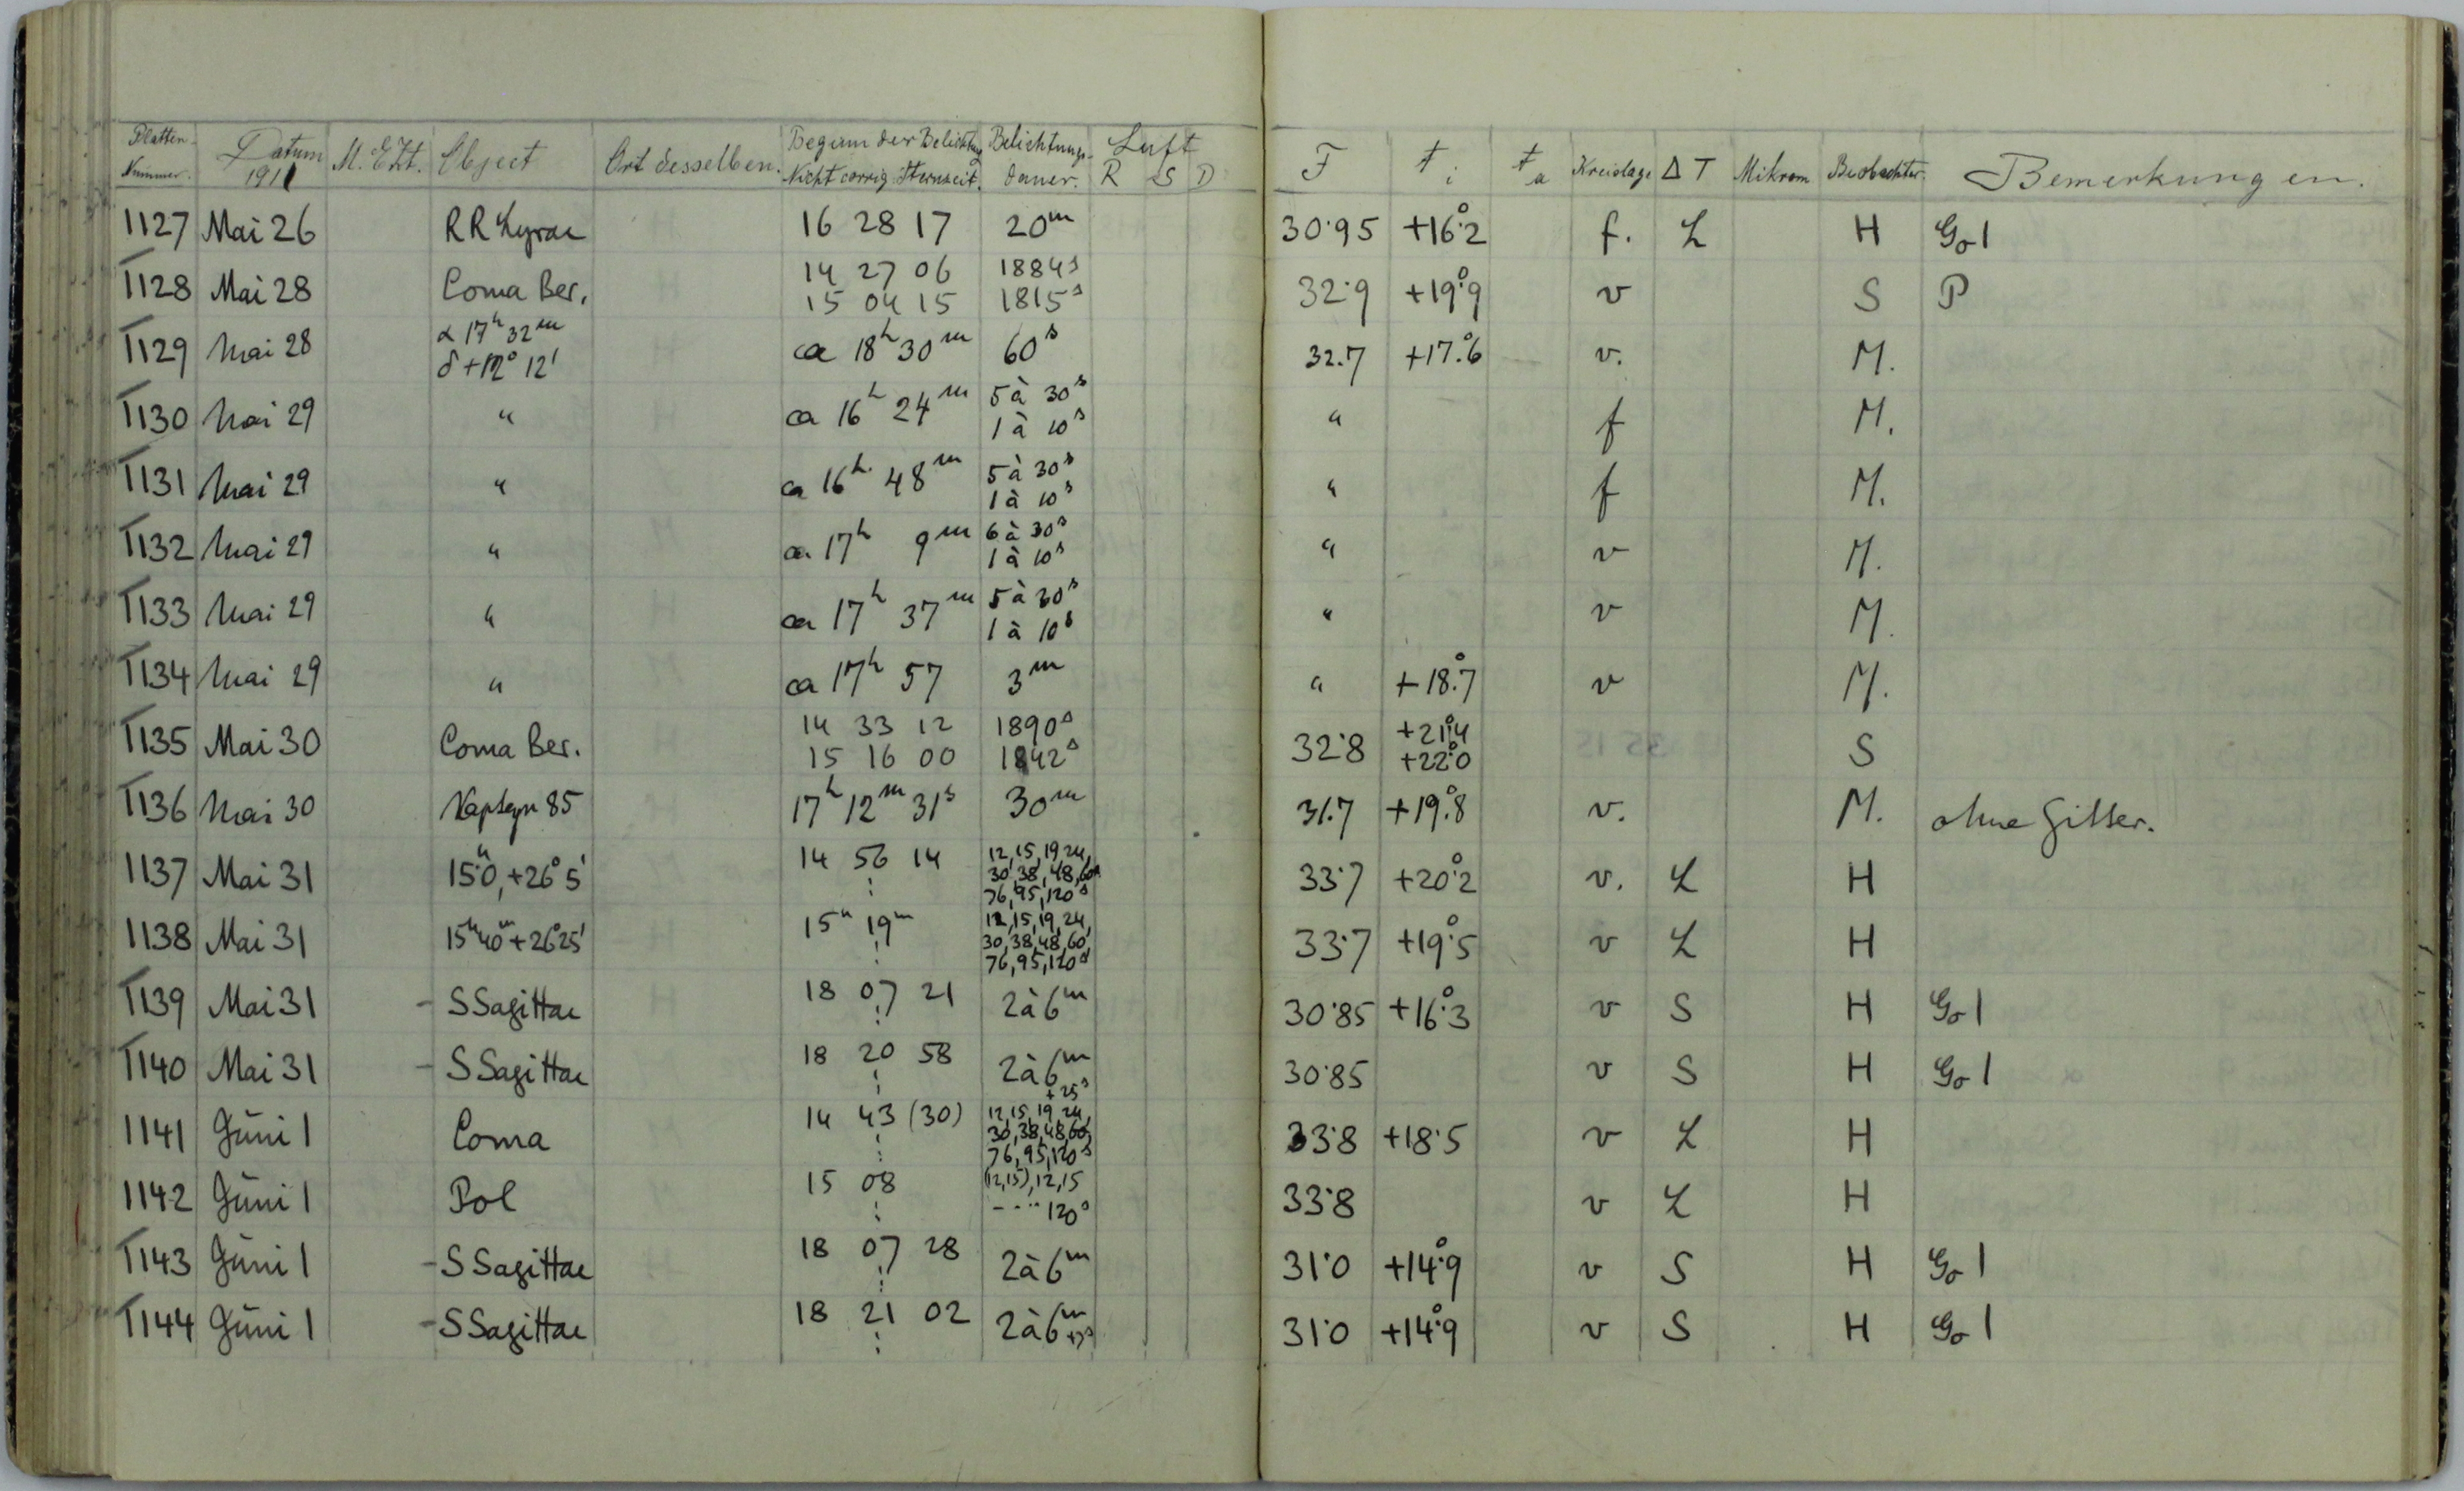 Platten-Nummer. Datum 1911 M. E. Zt. Object Ort desselben. Beginn der Belichtung Nicht corrig. Sternzeit. Belichtungs-dauer. Luft R S D F t i t a Kreislage Δ T Mikrom Beobachter. Bemerkungen.
1127 Mai 26 RR Lyrae 16 28 17 20m 30.95 +16°.2 f. L H Go 1
1128 Mai 28 Coma Ber. 14 27 06 1884s 32.9 +19°.9 v S P
15 04 15 1815s
1129 Mai 28 α 17h 32m ca 18h 30m 60s 32.7 +17°.6 v. M.
δ +12° 12'
1130 Mai 29 " ca 16h 24m 5 à 30s " f M.
1 à 10s
1131 Mai 29 " ca 16h 48m 5 à 30s " f M.
1 à 10s
1132 Mai 29 " ca 17h 9m 6 à 30s " v M.
1 à 10s
1133 Mai 29 " ca 17h 37m 5 à 30s " v M.
1 à 10s
1134 Mai 29 " ca 17h 57 3m " +18°.7 v M.
1135 Mai 30 Coma Ber. 14 33 12 1890s 32.8 +21°.4 S
15 16 00 1842s +22°.0
1136 Mai 30 Kapteyn 85 17h 12m 31s 30m 31.7 +19°.8 v. M. ohne Gitter.
1137 Mai 31 15h.0, +26° 5' 14 56 14 12, 15, 19, 24, 33.7 +20°.2 v. L H
30, 38, 48, 60,
76, 95, 120s
1138 Mai 31 15h 40m +26° 25' 15h 19m 12, 15, 19, 24, 33.7 +19°.5 v L H
30, 38, 48, 60,
76, 95, 120s
1139 Mai 31 - S Sagittae 18 07 21 2 à 6m 30.85 +16°.3 v S H Go 1
1140 Mai 31 - S Sagittae 18 20 58 2 à 6m 30.85 v S H Go 1
+25s
1141 Juni 1 Coma 14 43 (30) 12, 15, 19, 24, 33.8 +18.5 v L H
30, 38, 48, 60,
76, 95, 120s
1142 Juni 1 Pol 15 08 (12, 15), 12, 15 33.8 v L H
---- 120s
1143 Juni 1 - S Sagittae 18 07 28 2 à 6m 31.0 +14°.9 v S H Go 1
1144 Juni 1 - S Sagittae 18 21 02 2 à 6m 31.0 +14°.9 v S H Go 1